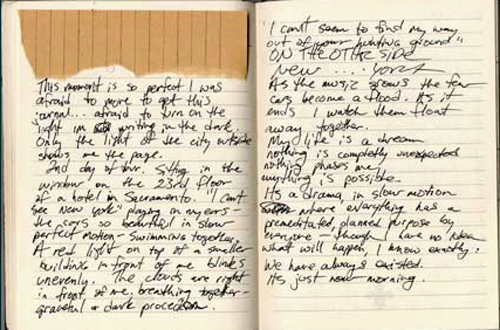 This moment is so perfect I was
afraid to move to get this
journal... afraid to turn on the
light im writing in the dark.
Only the light of the city outside
shows me the page.
2nd day of tour. Sitting in the
window on the 23rd floor
of a hotel in Sacramento. "I Can't
see New York" playing in my ears -
the cars so beautiful in slow
perfect motion - swimming together.
A red light on top of a smaller
building in front of me blinks
unevenly. The clouds are right
in front of me. breathing together -
graceful a dark procession.
"I can't seem to find my way
out of your hunting ground"
ON THE OTHER SIDE
New .... York
As the music grows the few
cars become a flood. As it
ends I watch them float
away together.
My life is a dream
nothing is completely unexpected
nothing phases me.
anything is possible.
Its a drama, in slow motion
where everything has a
premeditated, planned purpose by
everyone - though I have no idea
what will happen, I know exactly.
We have always existed.
Its just now morning.